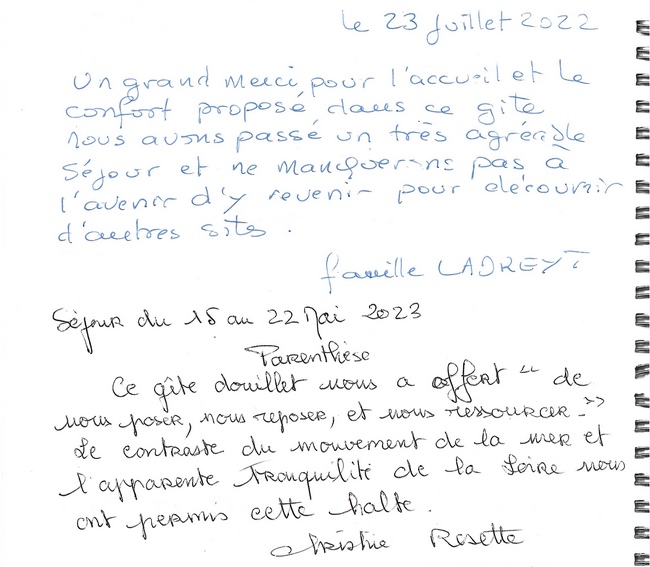 le 23 Juillet 2022
Un grand merci pour l'accueil et le
confort proposé, dans ce gite
nous avons passé un très agréable
séjour et ne manquerons pas à
l'avenir d'y revenir pour découvrir
d'autres sites.
famille LADREYT
Séjour du 15 au 22 Mai 2023
Parenthèse
Ce gîte douillet nous a offert " de
nous poser, nous reposer, et nous ressourcer - "
Le contraste du mouvement de la mer et
l'apparente tranquilité de la Loire nous
ont permis cette halte.
Christie Rosette